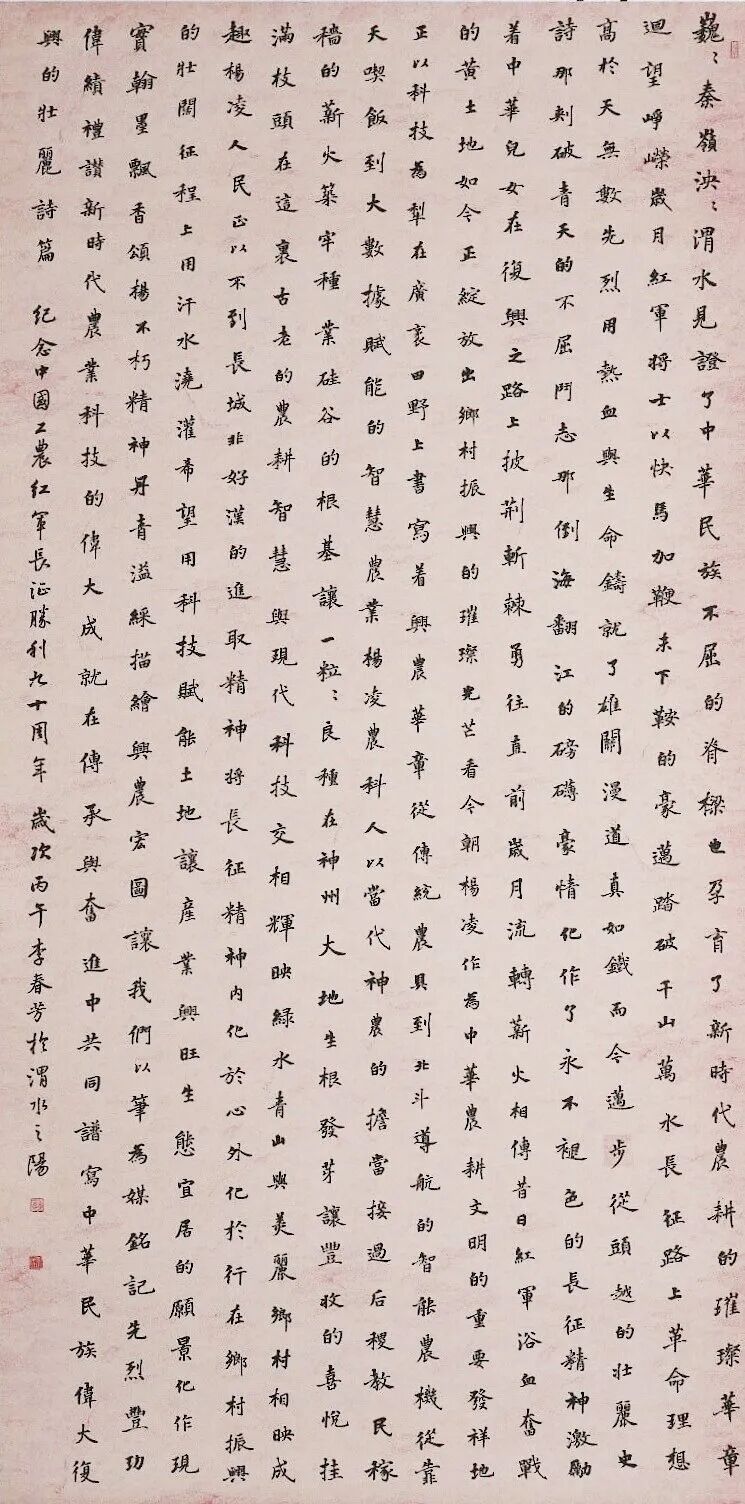 巍〻秦嶺泱〻渭水見證了中華民族不屈的脊樑也孕育了新時代農耕的璀璨華章
迴望崢嶸歲月紅軍將士以快馬加鞭未下鞍的豪邁踏破千山萬水長征路上革命理想
高於天無數先烈用熱血與生命鑄就了雄關漫道真如鐵而今邁步從頭越的壯麗史
詩那刺破青天的不屈鬥志那倒海翻江的磅礴豪情化作了永不褪色的長征精神激勵
着中華兒女在復興之路上披荆斬棘勇往直前歲月流轉薪火相傳昔日紅軍浴血奮戰
的黄土地如今正綻放出鄉村振興的璀璨光芒看今朝楊凌作為中華農耕文明的重要發祥地
正以科技為犁在廣袤田野上書寫着興農華章從傳統農具到北斗導航的智能農機從靠
天喫飯到大數據賦能的智慧農業楊凌農科人以當代神農的擔當接過后稷教民稼
穡的薪火築牢種業硅谷的根基讓一粒〻良種在神州大地生根發芽讓豐收的喜悅挂
滿枝頭在這裏古老的農耕智慧與現代科技交相輝映緑水青山與美麗鄉村相映成
趣楊凌人民正以不到長城非好漢的進取精神將長征精神内化於心外化於行在鄉村振興
的壯闊征程上用汗水澆灌希望用科技賦能土地讓産業興旺生態宜居的願景化作現
實翰墨飄香頌楊不朽精神丹青溢綵描繪興農宏圖讓我們以筆為媒銘記先烈豐功
偉績禮讃新時代農業科技的偉大成就在傳承與奮進中共同譜寫中華民族偉大復
興的壯麗詩篇 紀念中國工農紅軍長征勝利九十周年 歲次丙午李春芳於渭水之陽